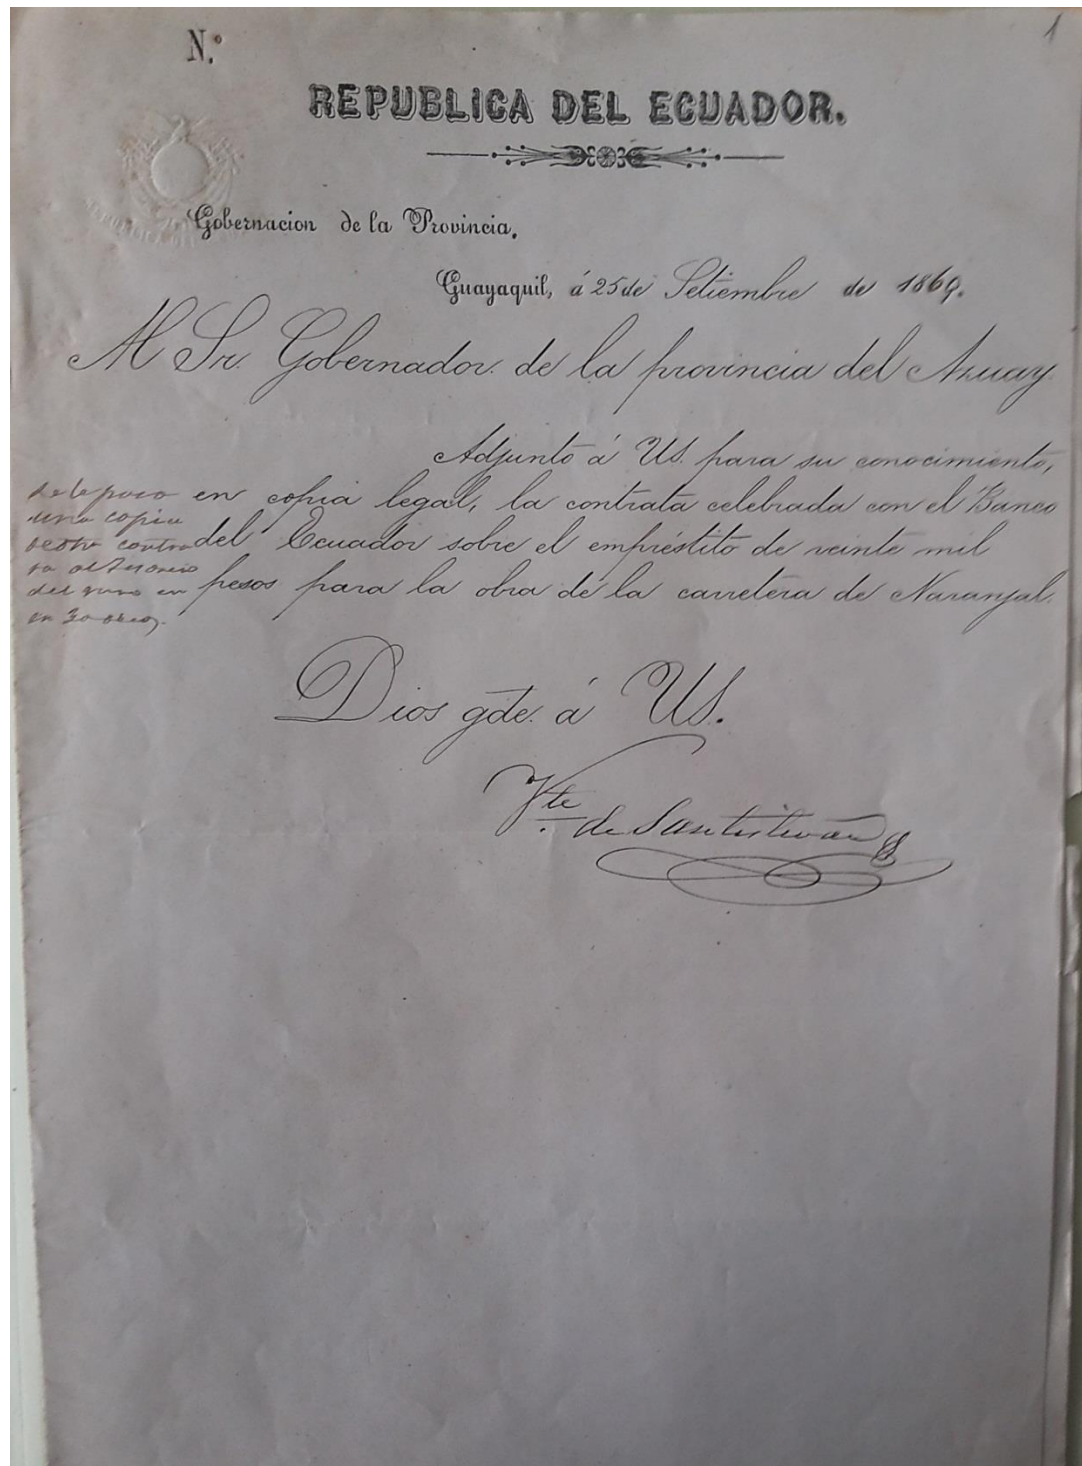 1
N.º
REPUBLICA DEL ECUADOR.
Gobernacion de la Provincia.
Guayaquil, á 25 de Setiembre de 1869.
Al Sr. Gobernador de la provincia del Azuay.
Adjunto á US. para su conocimiento,
en copia legal, la contrata celebrada con el Banco
del Ecuador sobre el empréstito de veinte mil
pesos para la obra de la carretera de Naranjal.
una copia
Dios gde. á US.
Vte de Santistevan